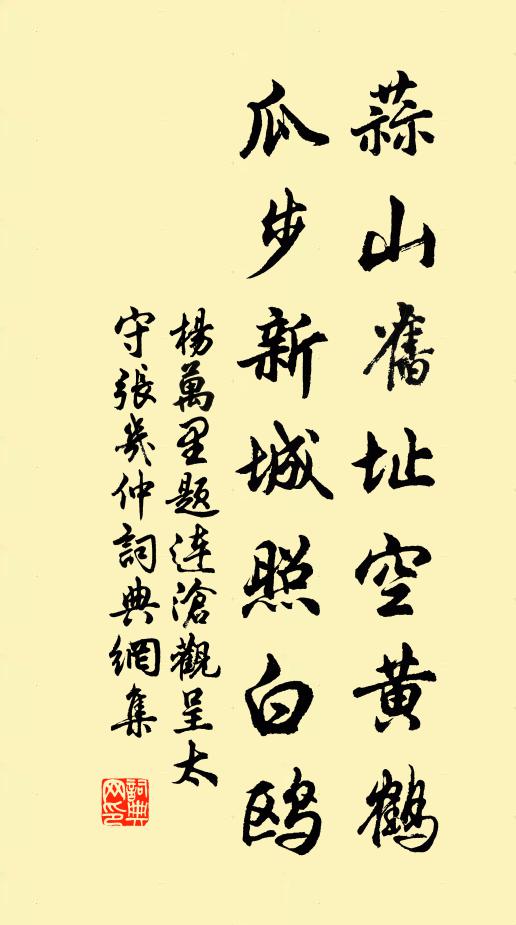 蒜山舊址空黃鶴
瓜步新城照白鸥
楊萬里題連滄觀呈太
守張幾仲詞典網集
詞典
网印